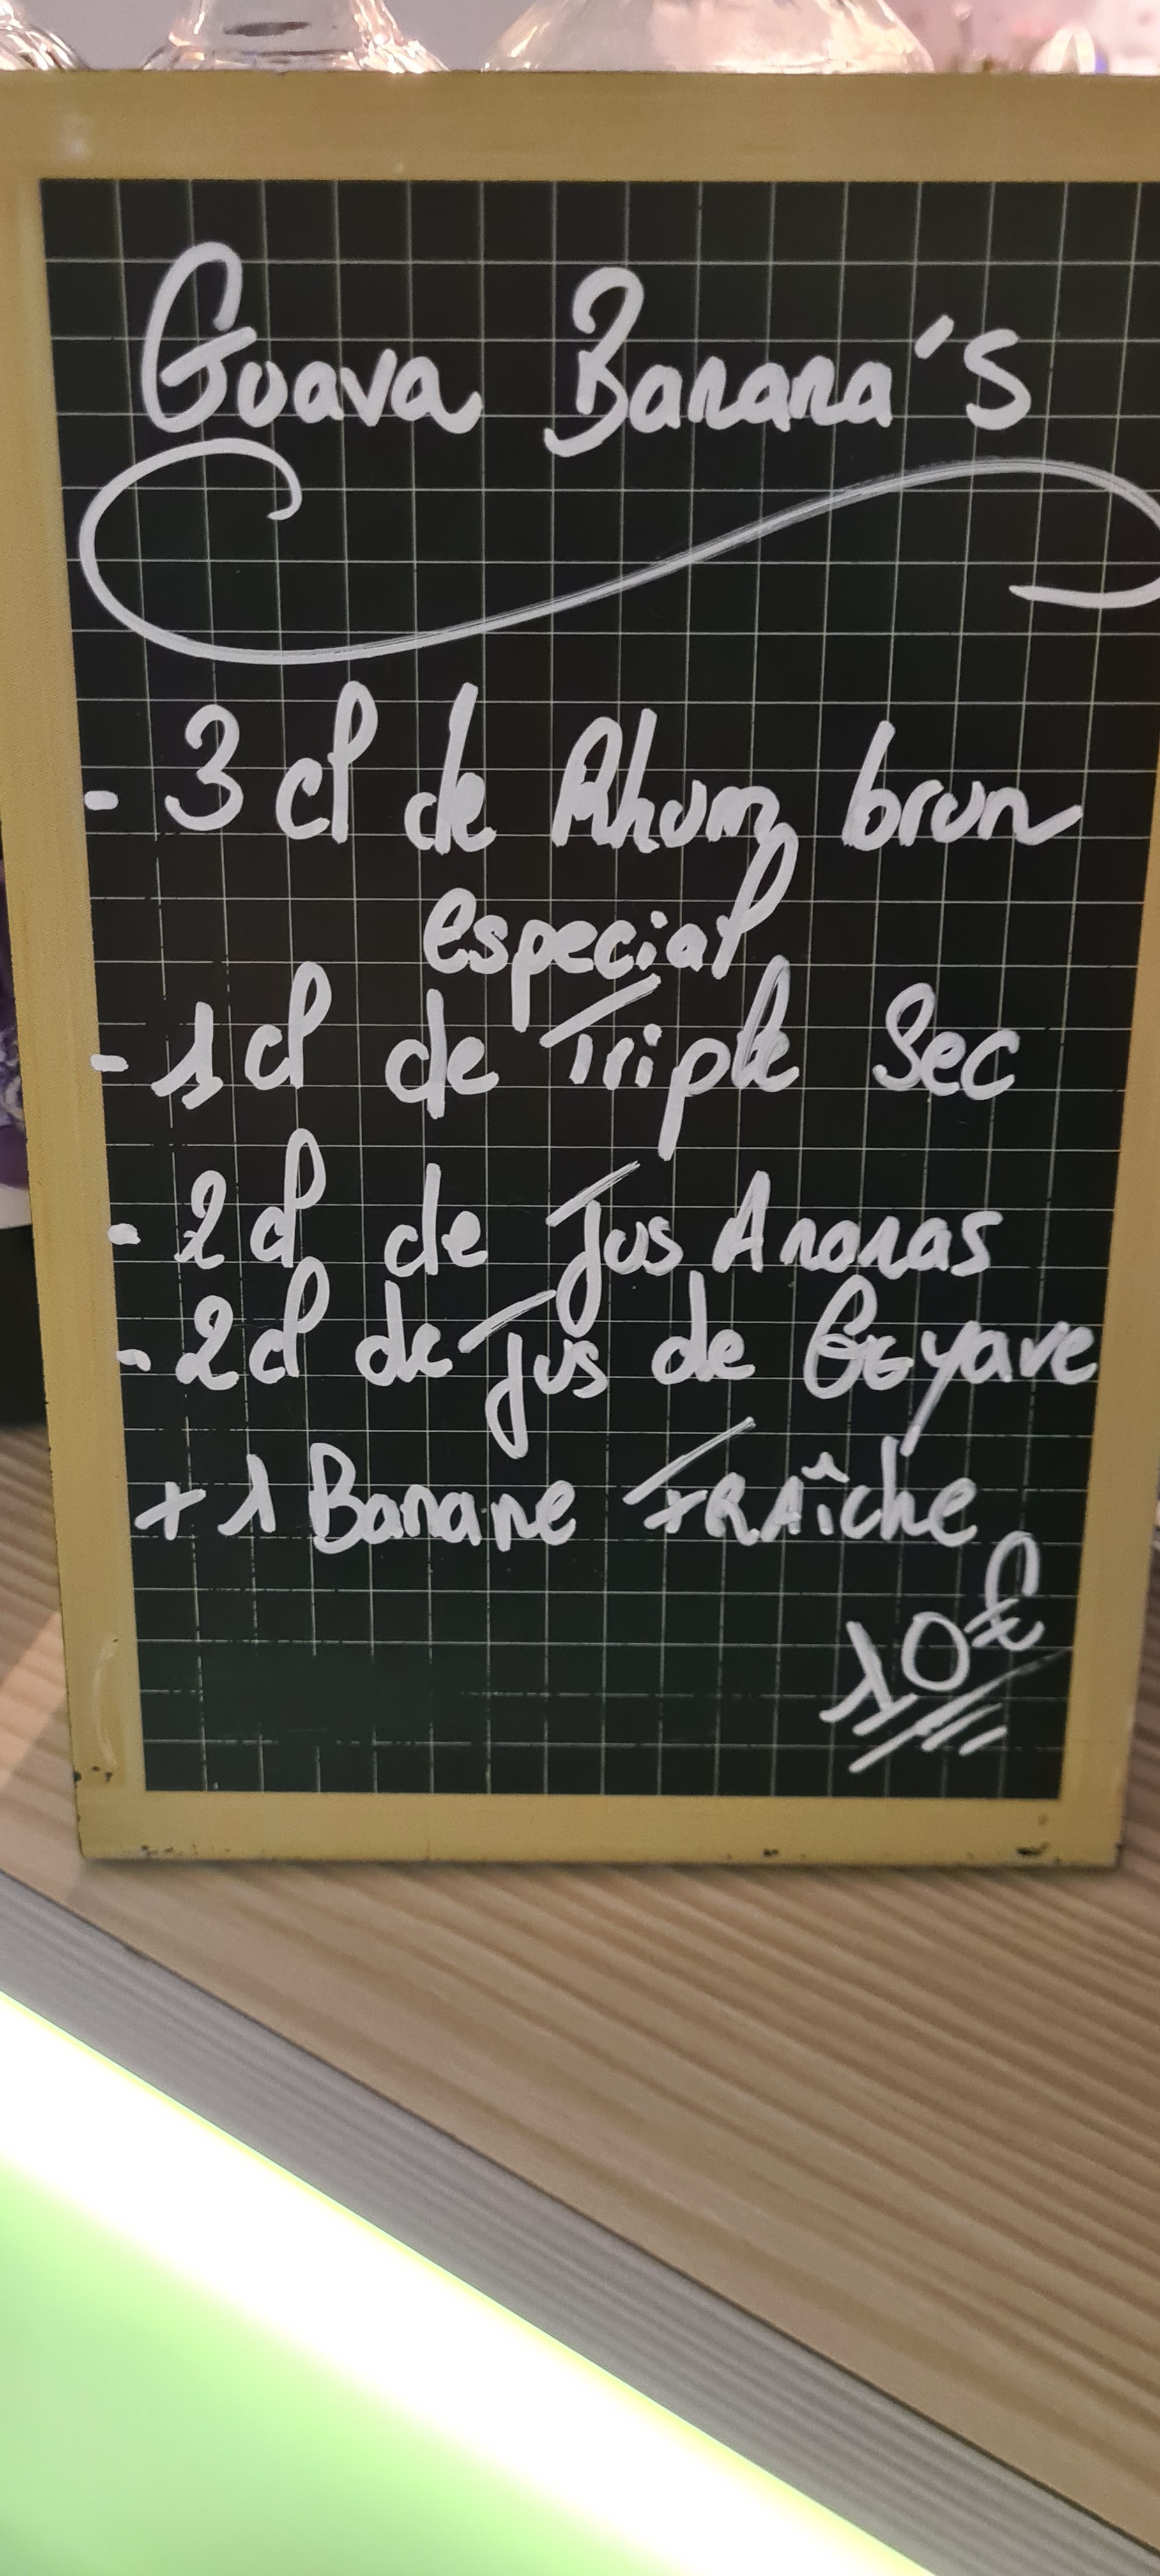 Guava Banana's
- 3 cl de Rhum brun
especial
- 1 cl de Triple Sec
- 2 cl de Jus Ananas
- 2 cl de Jus de Goyave
+ 1 Banane FRAîche
10€